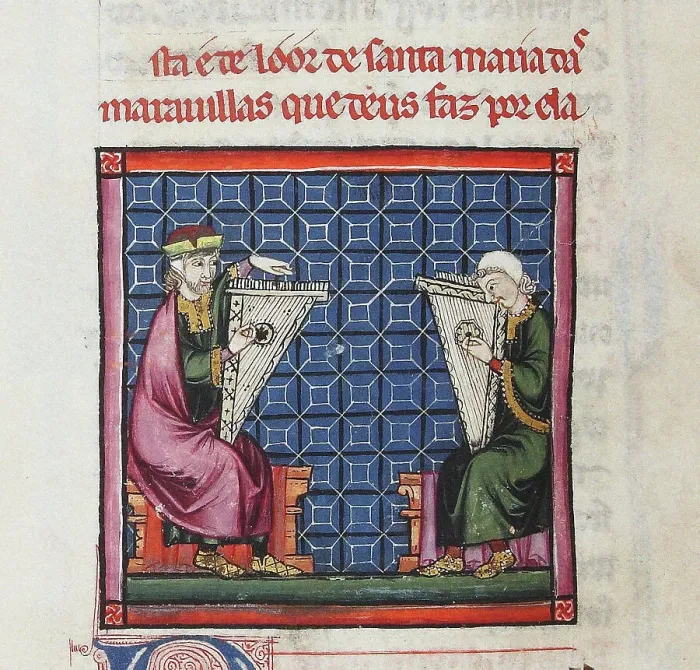 sta é de loor de santa maria das
marauillas que deus faz por ela